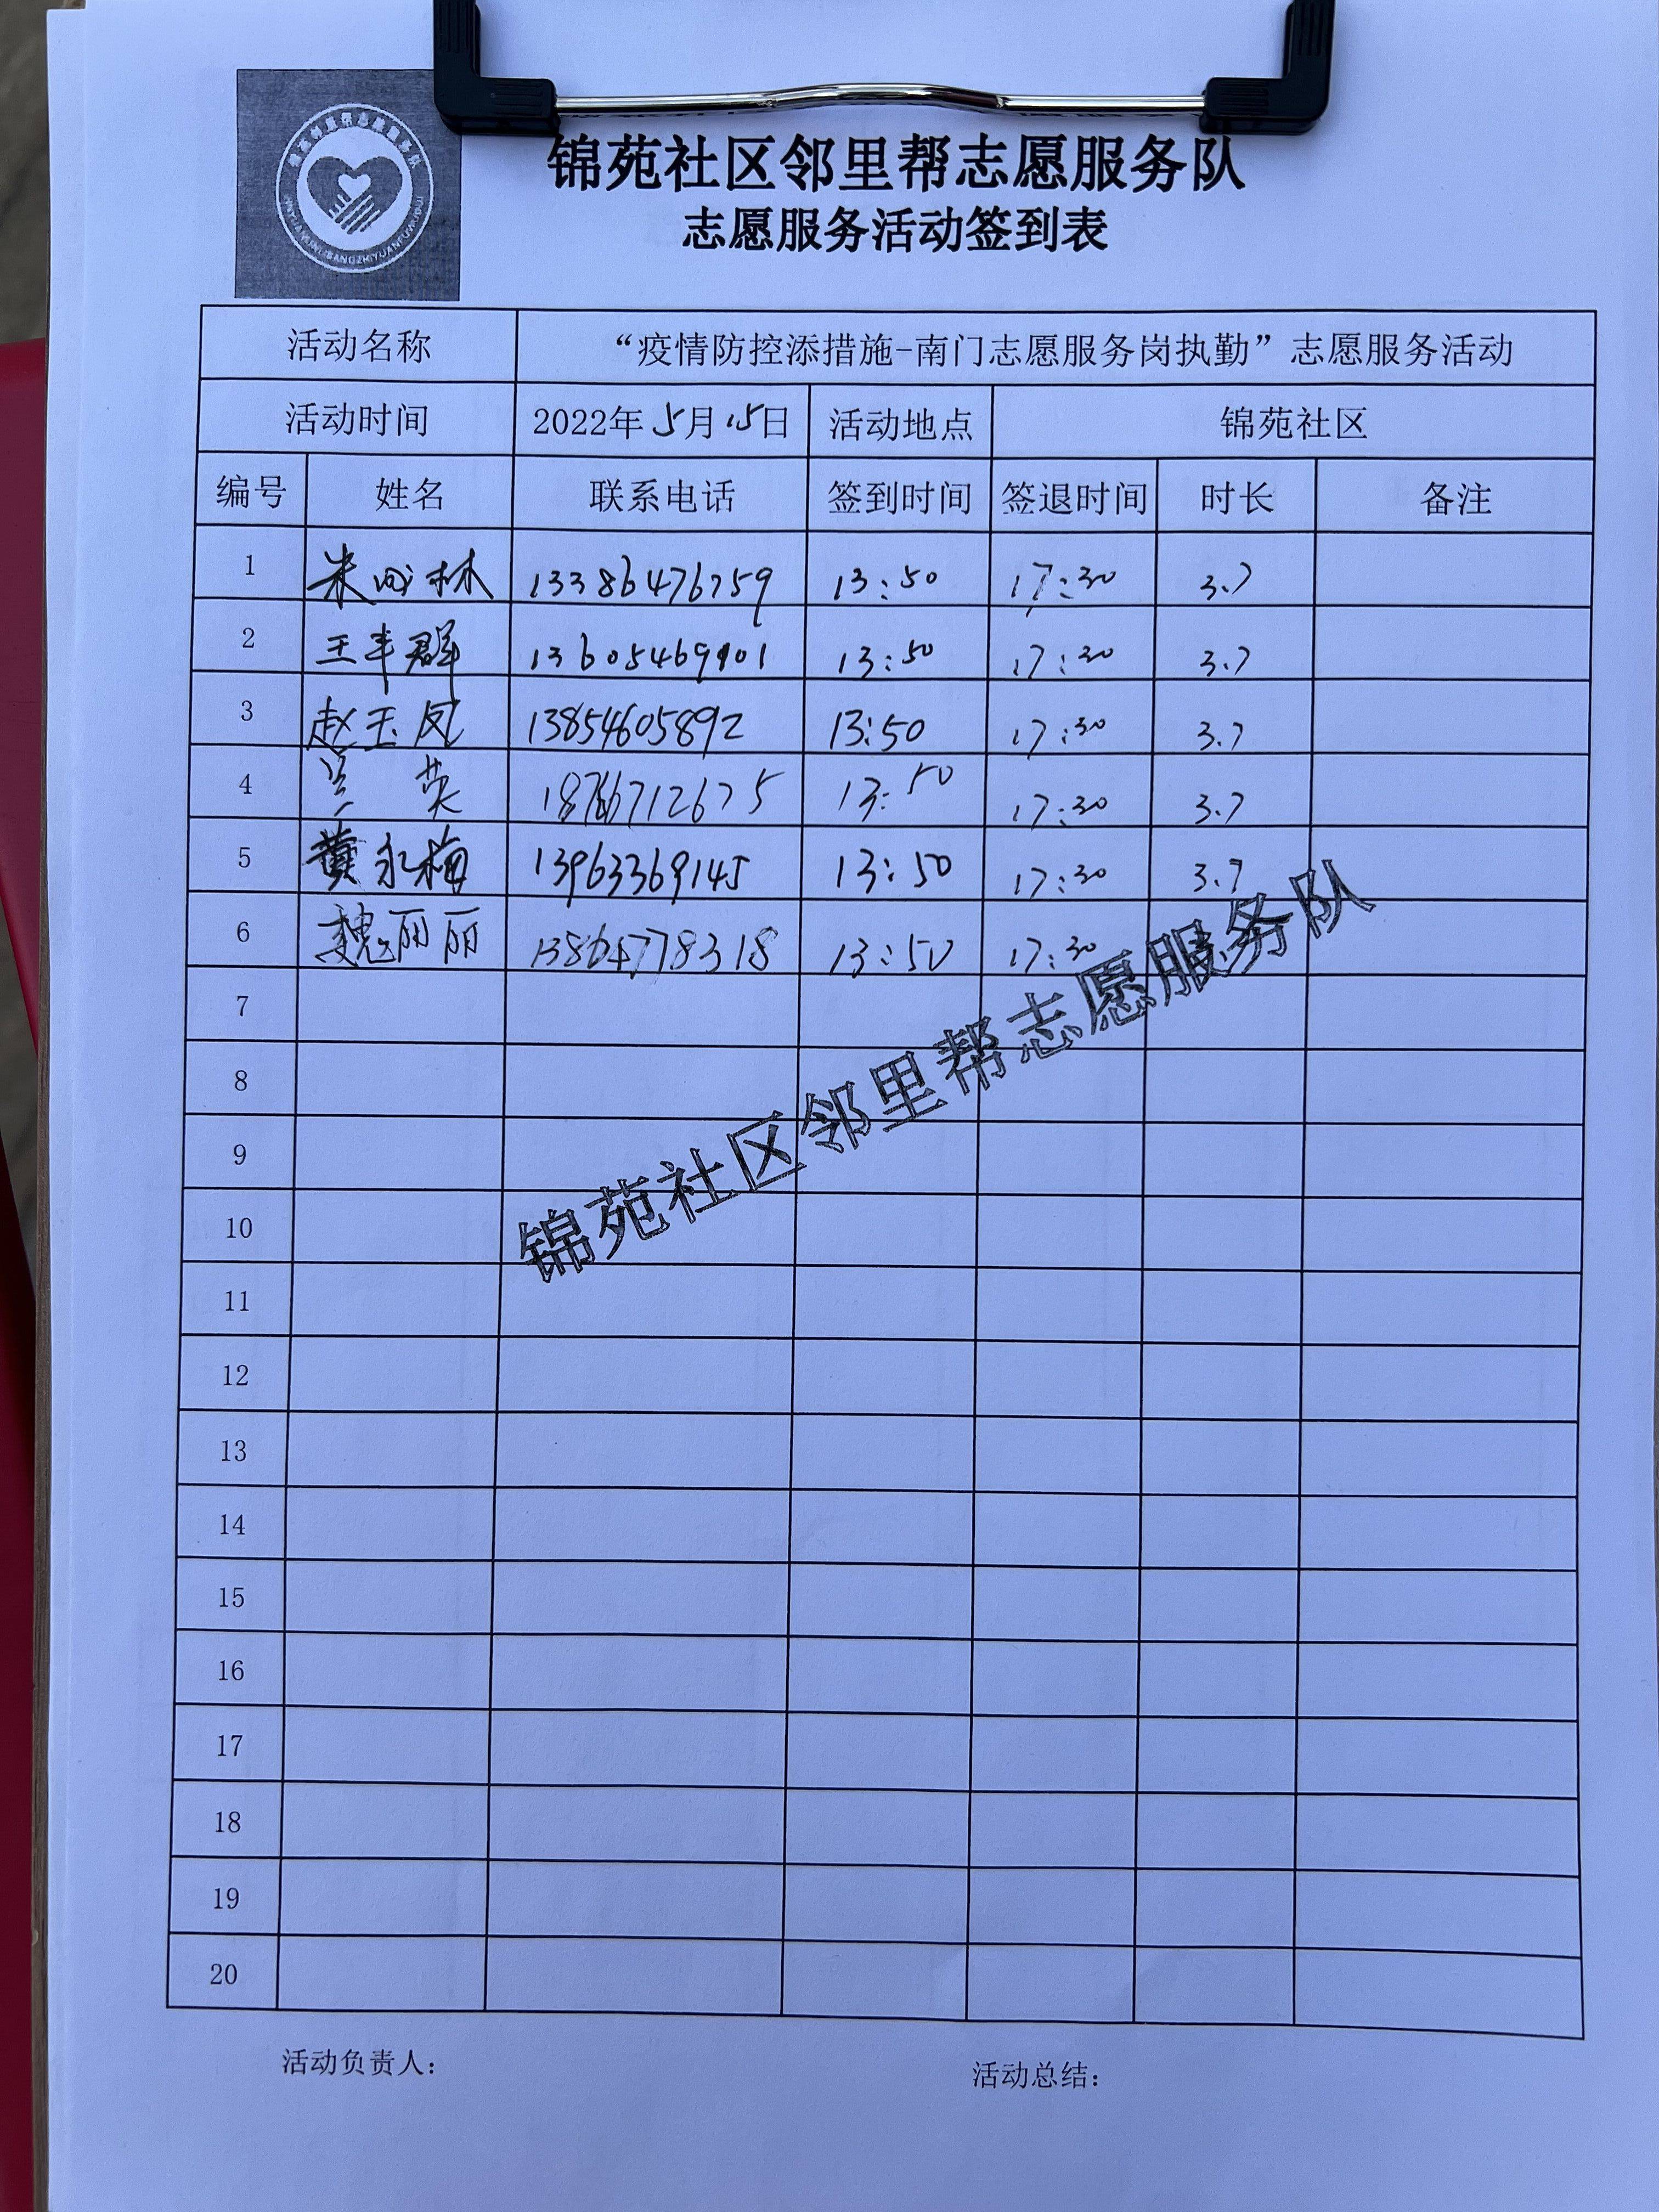 锦苑社区邻里帮志愿服务队
志愿服务活动签到表
活动名称 “疫情防控添措施-南门志愿服务岗执勤”志愿服务活动
活动时间 2022年5月15日 活动地点 锦苑社区
编号 姓名 联系电话 签到时间 签退时间 时长 备注
1 13386476759 13:50 17:30 3.7
2 王丰群 13605469901 13:50 17:30 3.7
3 赵玉凤 13854605892 13:50 17:30 3.7
4 英 13:50 17:30 3.7
5 黄永梅 13963369145 13:50 17:30 3.7
6 魏丽丽 13864778318 13:50 17:30
7
8
9
10
11
12
13
14
15
16
17
18
19
20
锦苑社区邻里帮志愿服务队
活动负责人: 活动总结: